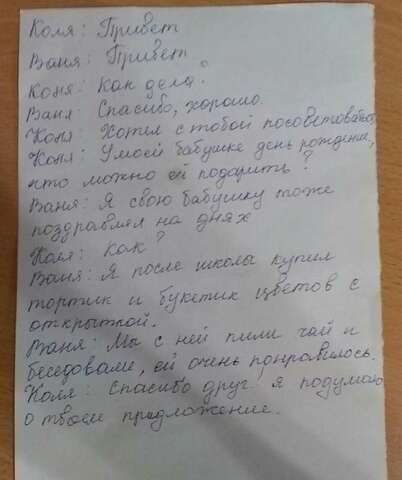 Коля: Привет
Ваня: Привет
Коля: Как дела?
Ваня: Спасибо, хорошо
Коля: Хотел с тобой посоветоваться
Коля: У моей бабушке день рождение,
что можно ей подарить?
Ваня: Я свою бабушку тоже
поздравлял на днях
Коля: Как?
Ваня: Я после школы купил
тортик и букетик цветов с
открыткой.
Ваня: Мы с ней пили чай и
беседовали, ей очень понравилось.
Коля: Спасибо друг, я подумаю
о твоем предложение.